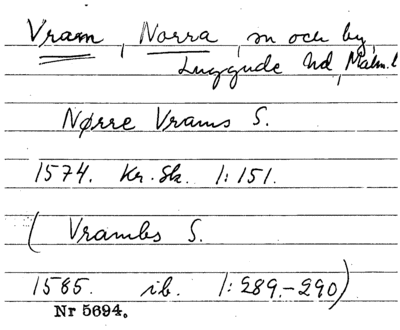 Vram, Norra, sn och by,
Luggude hd, Malm. l
Nørre Vrams S.
1574. Kr. Sk. 1:151.
( Vrambs S.
1585. ib. 1:289.-290)
Nr 5694.